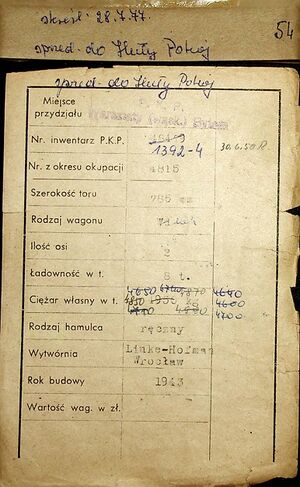 skreśl: 28.7.77.
54
sprzed. do Huty Pokój
sprzed. do Huty Pokój
Miejsce
przydziału
P. K. P.
Nr. inwentarz P.K.P.
1392-4
30.6.50 R
Nr. z okresu okupacji
4815
Szerokość toru
785
Rodzaj wagonu
Ilość osi
2
Ładowność w t.
8 t.
4650
4700
4870
4640
Ciężar własny w t.
4850
4600
4700
4700
Rodzaj hamulca
ręczny
Wytwórnia
Linke-Hofman
Wrocław
Rok budowy
1943
Wartość wag. w zł.